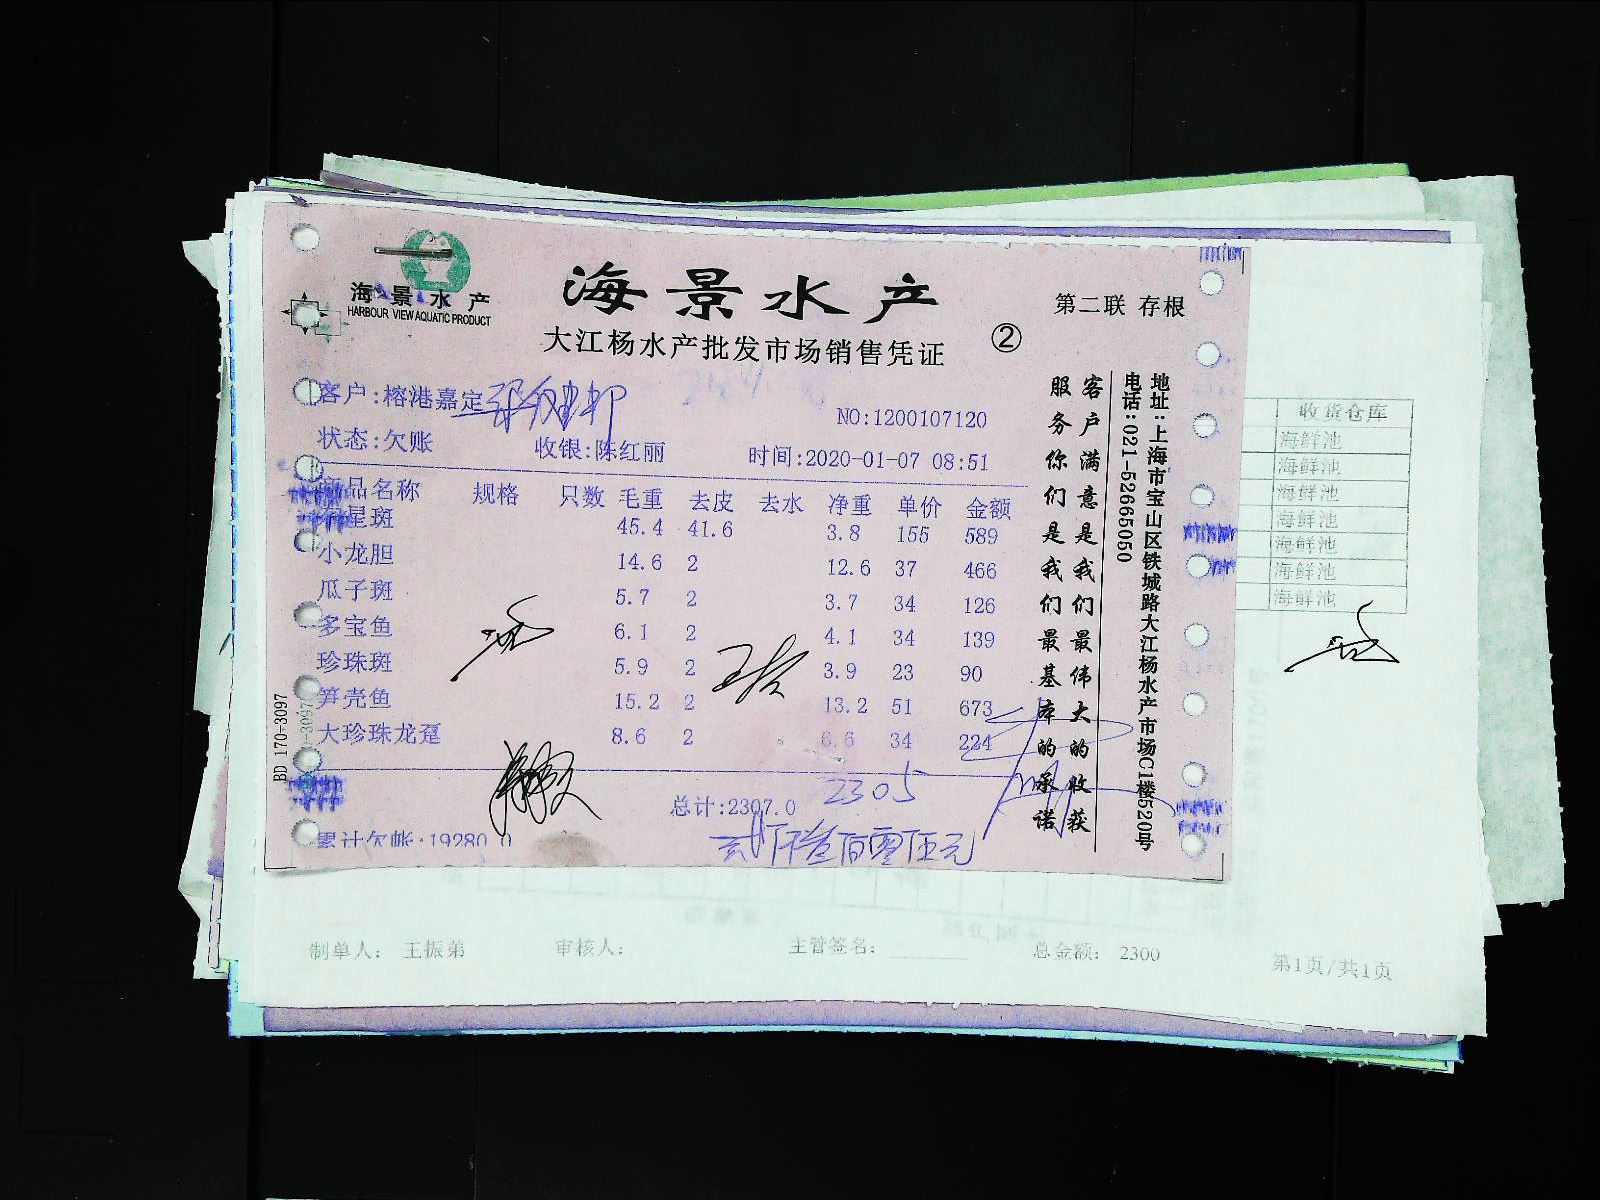 海景水产
HARBOUR VIEW AQUATIC PRODUCT
海景水产
大江杨水产批发市场销售凭证
②
第二联 存根
客户:榕港嘉定
NO:1200107120
状态:欠账 收银:陈红丽 时间:2020-01-07 08:51
商品名称 规格 只数 毛重 去皮 去水 净重 单价 金额
星斑 45.4 41.6 3.8 155 589
小龙胆 14.6 2 12.6 37 466
瓜子斑 5.7 2 3.7 34 126
多宝鱼 6.1 2 4.1 34 139
珍珠斑 5.9 2 3.9 23 90
笋壳鱼 15.2 2 13.2 51 673
大珍珠龙趸 8.6 2 6.6 34 224
总计:2307.0
2305
贰仟叁佰零伍元
累计欠帐:19280.0
客户满意是我们最伟大的收获
服务你们是我们最基本的承诺
地址:上海市宝山区铁城路大江杨水产市场C1楼520号
电话:021-52665050
BD 170-3097
收货仓库
海鲜池
海鲜池
海鲜池
海鲜池
海鲜池
海鲜池
海鲜池
制单人: 王振弟 审核人: 主管签名: 总金额: 2300
第1页/共1页